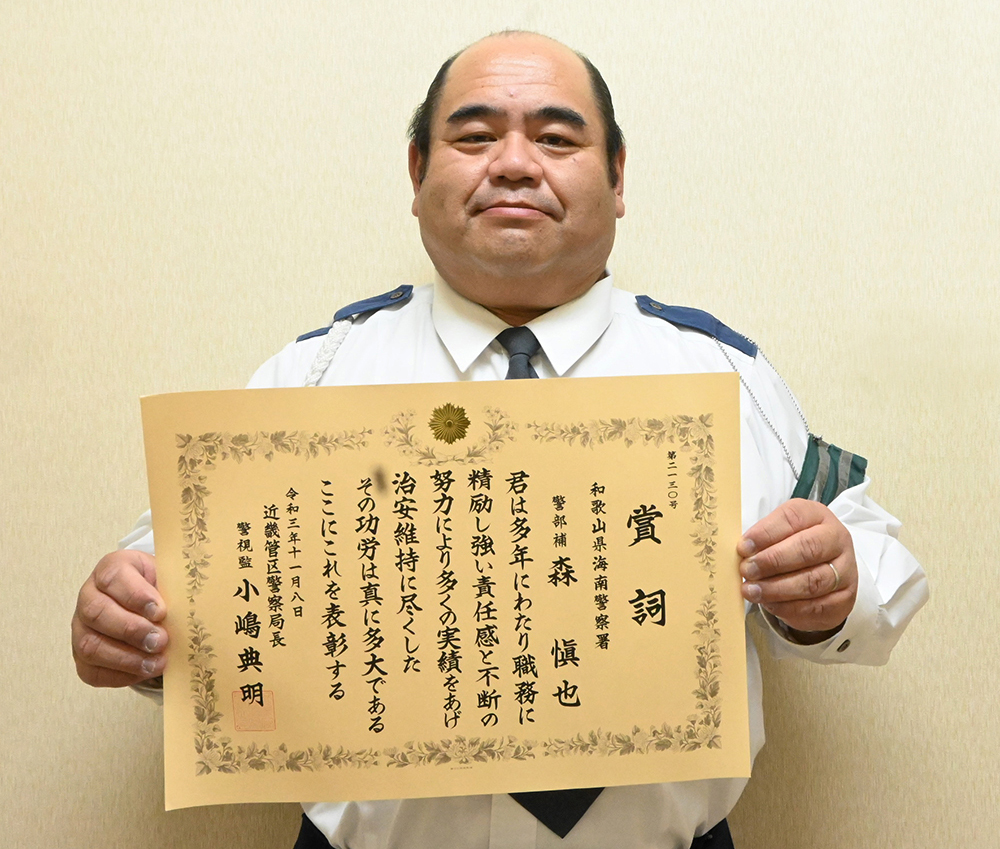 第二一三〇号
賞詞
和歌山県海南警察署
警部補 森 愼也
君は多年にわたり職務に
精励し強い責任感と不断の
努力により多くの実績をあげ
治安維持に尽くした
その功労は真に多大である
ここにこれを表彰する
令和三年十一月八日
近畿管区警察局長
警視監 小嶋典明